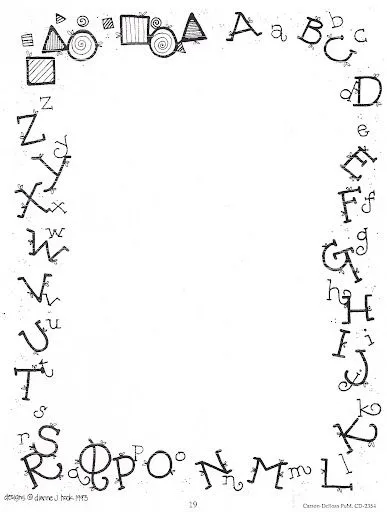 A a B b C c
D d
e E
F f
G g
h H
I i
J j
k K
L l
M m
N n
O o
P p
Q q
R r
S s
T t
U u
V v
W w
X x
Y y
Z z
designs © dianne J hook 1993
19
Carson-Dellosa Publ. CD-2354